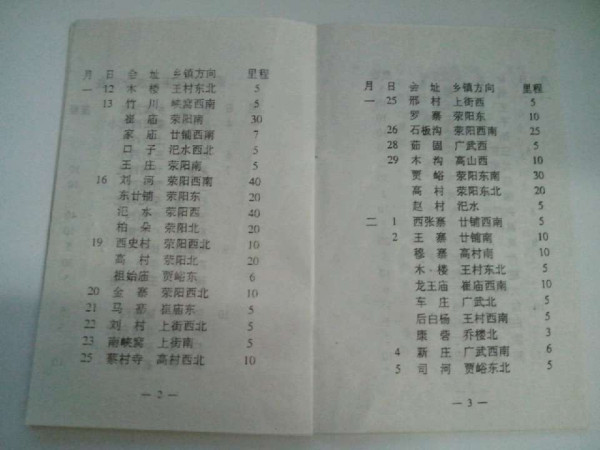 月 日 会 址 乡镇方向 里程
一 12 木 楼 王村东北 5
13 竹 川 峡窝西南 5
崔 庙 荥阳南 30
家 庙 廿铺西南 7
口 子 汜水西北 5
王 庄 荥阳南 5
16 刘 河 荥阳西南 40
东廿铺 荥阳东 20
汜 水 荥阳西 40
柏 朵 荥阳北 20
19 西史村 荥阳西北 10
高 村 荥阳北 20
祖始庙 贾峪东 6
20 金 寨 荥阳西北 10
21 马 寨 崔庙东 5
22 刘 村 上街西北 5
23 南峡窝 上街南 5
25 蔡村寺 高村西北 10
— 2 —
月 日 会 址 乡镇方向 里程
一 25 邢 村 上街西 5
罗 寨 荥阳东 10
26 石板沟 荥阳西南 25
28 茹 固 广武西 5
29 木 沟 高山西 10
贾 峪 荥阳东南 30
高 村 荥阳东北 20
赵 村 汜水 5
二 1 西张寨 廿铺西南 5
2 王 寨 廿铺南 10
穆 寨 高村南 10
木 楼 王村东北 5
龙王庙 崔庙西南 10
车 庄 广武北 5
后白杨 王村西南 5
康 砦 乔楼北 3
4 新 庄 广武西南 6
5 司 河 贾峪东北 5
— 3 —